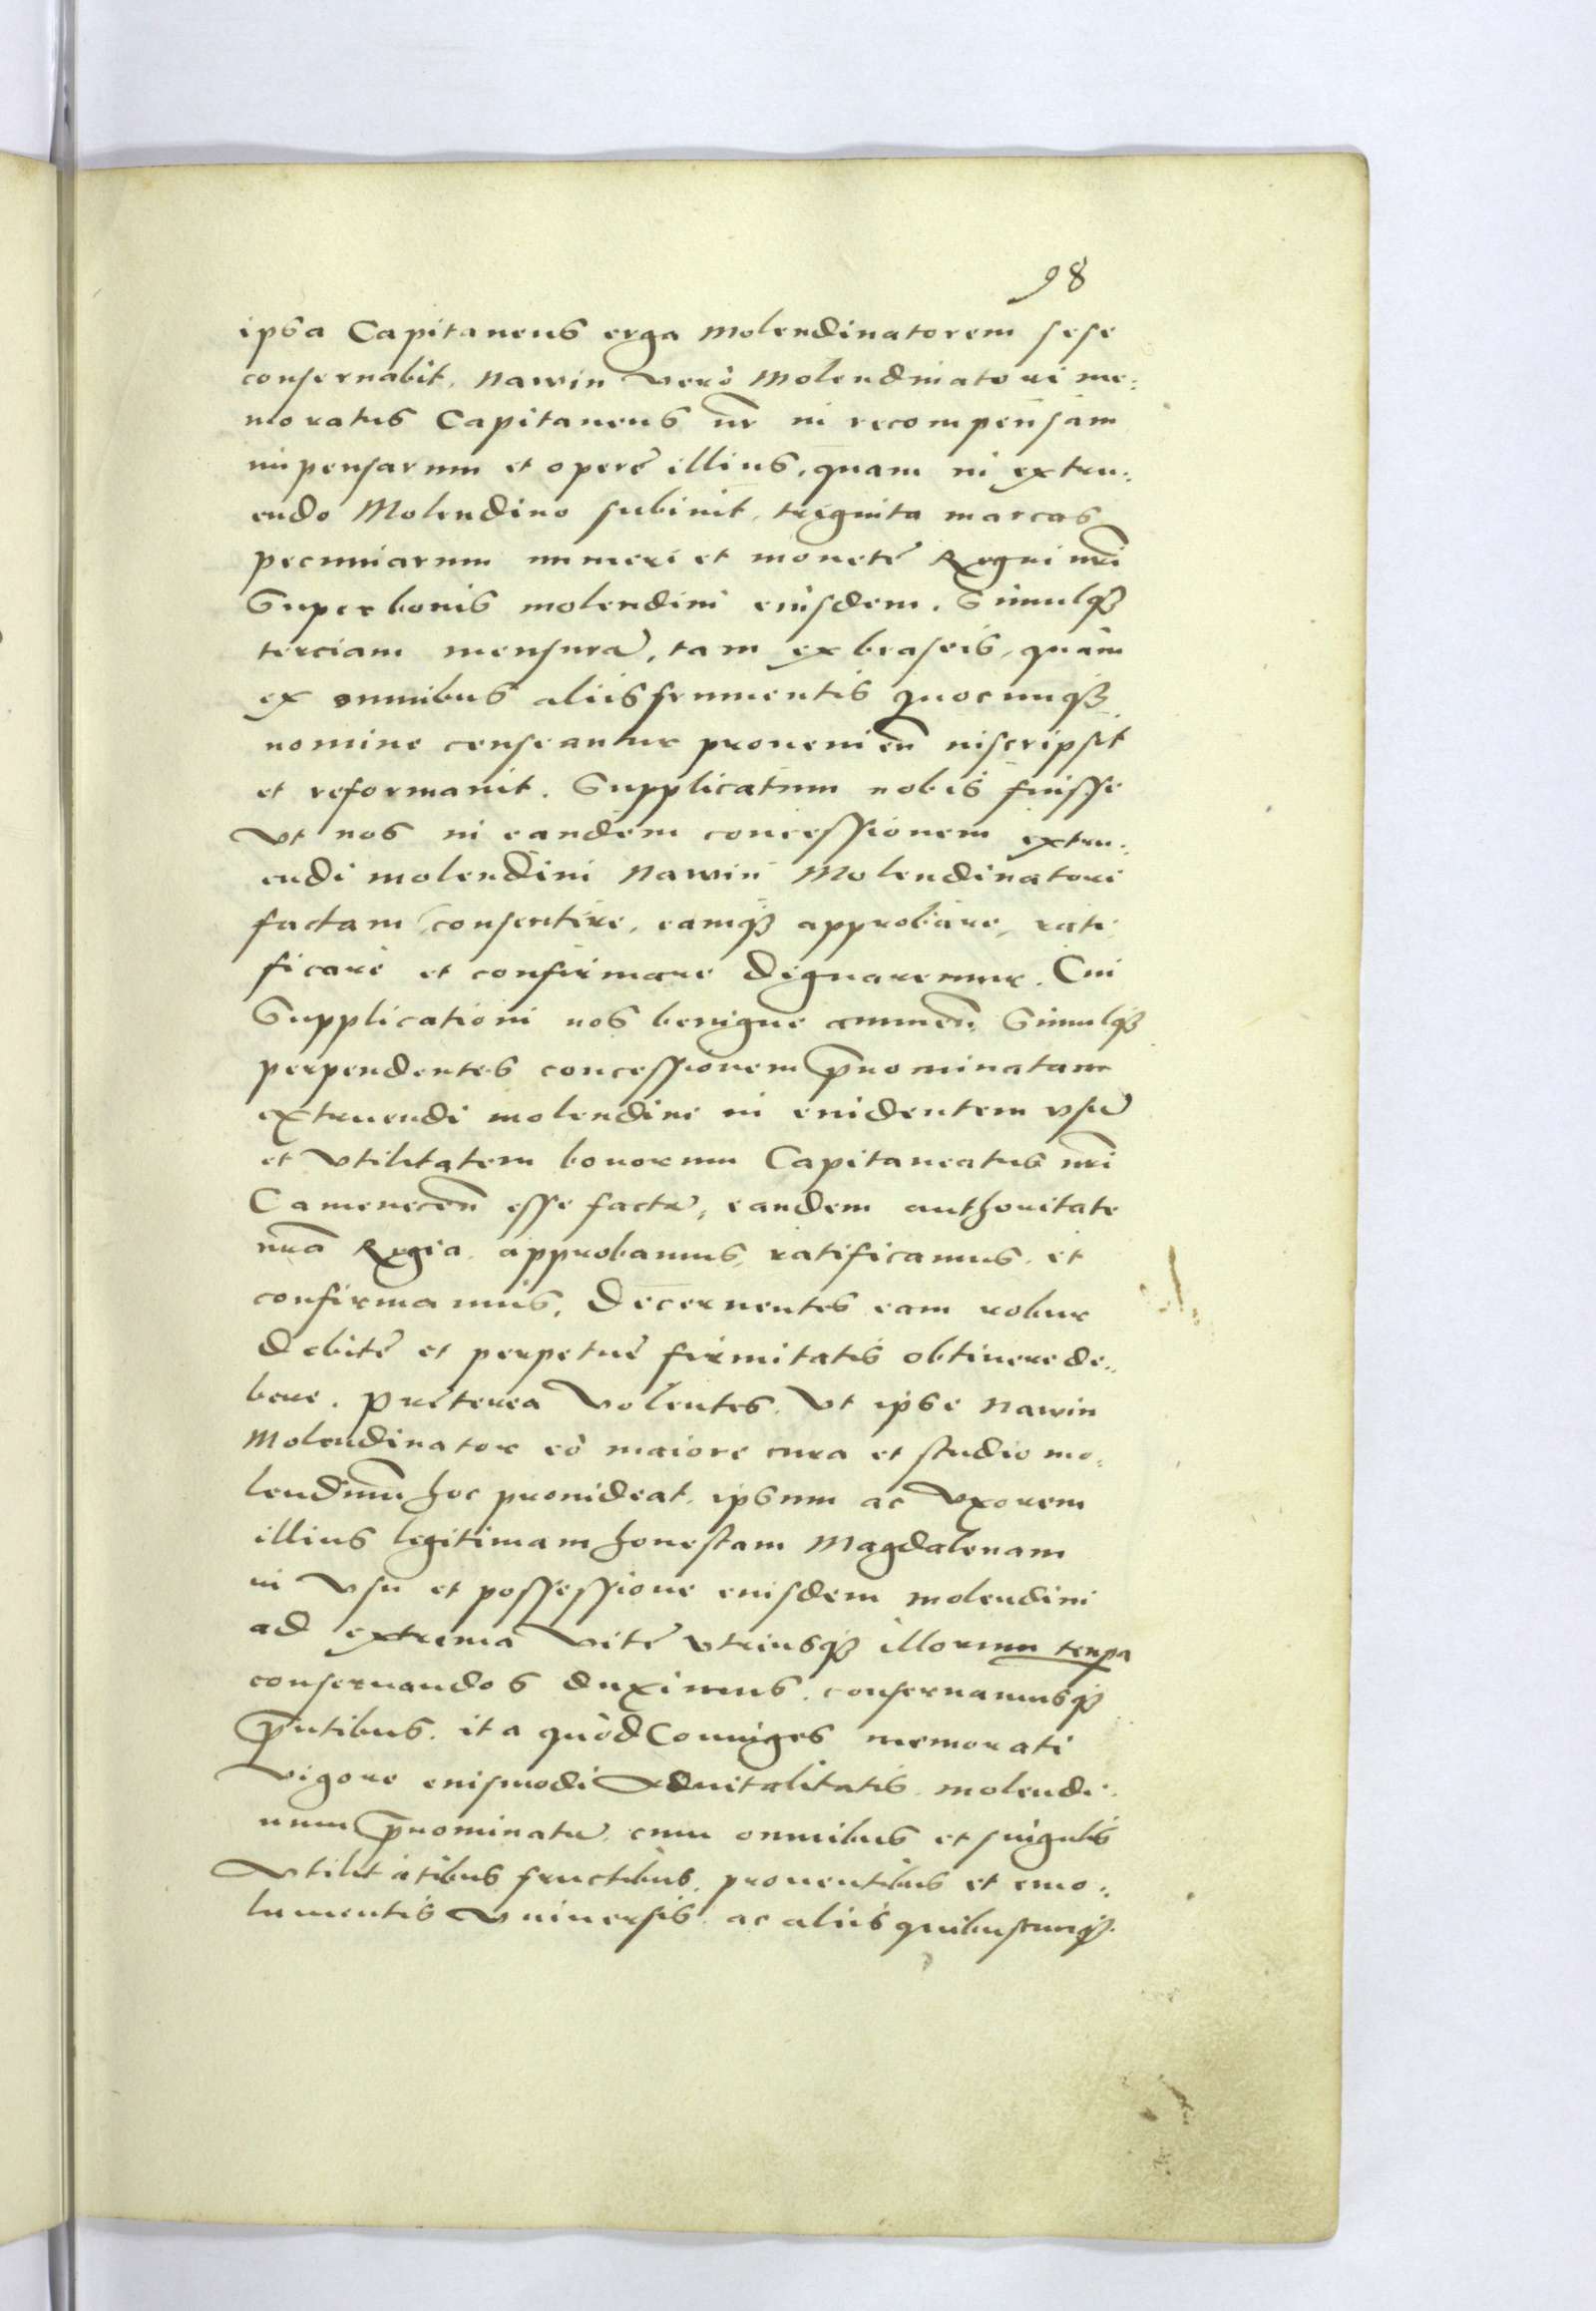 98
ipsa Capitaneus erga Molendinatorem sese
conseruabit. Nawin verò Molendinatori me:
moratus Capitaneus nr̄ in recompensam
impensarum et operę illius, quam in extru:
endo Molendino subiuit, triginta marcas
pecuniarum numeri et monetę Regni nr̄i
Super bonis molendini eiusdem. Simulqȝ
terciam mensurā, tam ex braseis, quàm
ex omnibus aliis frumentis quocunqȝ
nomine censeantur prouenien̄ inscripsit
et reformauit. Supplicatum nobis fuisse
Vt nos in eandem concessionem extru:
endi molendini Nawin Molendinatori
factam consentire, eamqȝ approbare, rati
ficare et confirmare dignaremur. Cui
Supplicationi nos benigne annuen̄. Simulqȝ
perpendentes concessionem p̄nominatam
extruendi molendini in euidentem vsū
et Vtilitatem bonorum Capitaneatus nr̄i
Camenecen̄ esse factā, eandem authoritate
nr̄a Regia approbamus, ratificamus et
confirmamus, Decernentes eam robur
debitę et perpetuę firmitatis obtinere de:
bere. Pręterea Volentes, Vt ipse Nawin
Molendinator eò maiore cura et studio mo:
lendinū hoc prouideat, ipsum ac Vxorem
illius legitimam honestam Magdalenam
in Vsu et possessione eiusdem molendini
ad extrema Vitę vtriusqȝ illorum tempa
conseruandos duximus, conseruamusqȝ
p̄ntibus. ita quòd Coniuges memorati
Vigore eiusmodi Aduitalitatis molendi:
num p̄nominatū cum omnibus et singulis
Vtilitatibus fructibus, prouentibus et emo:
lumentis Vniuersis ac aliis quibuscunqȝ